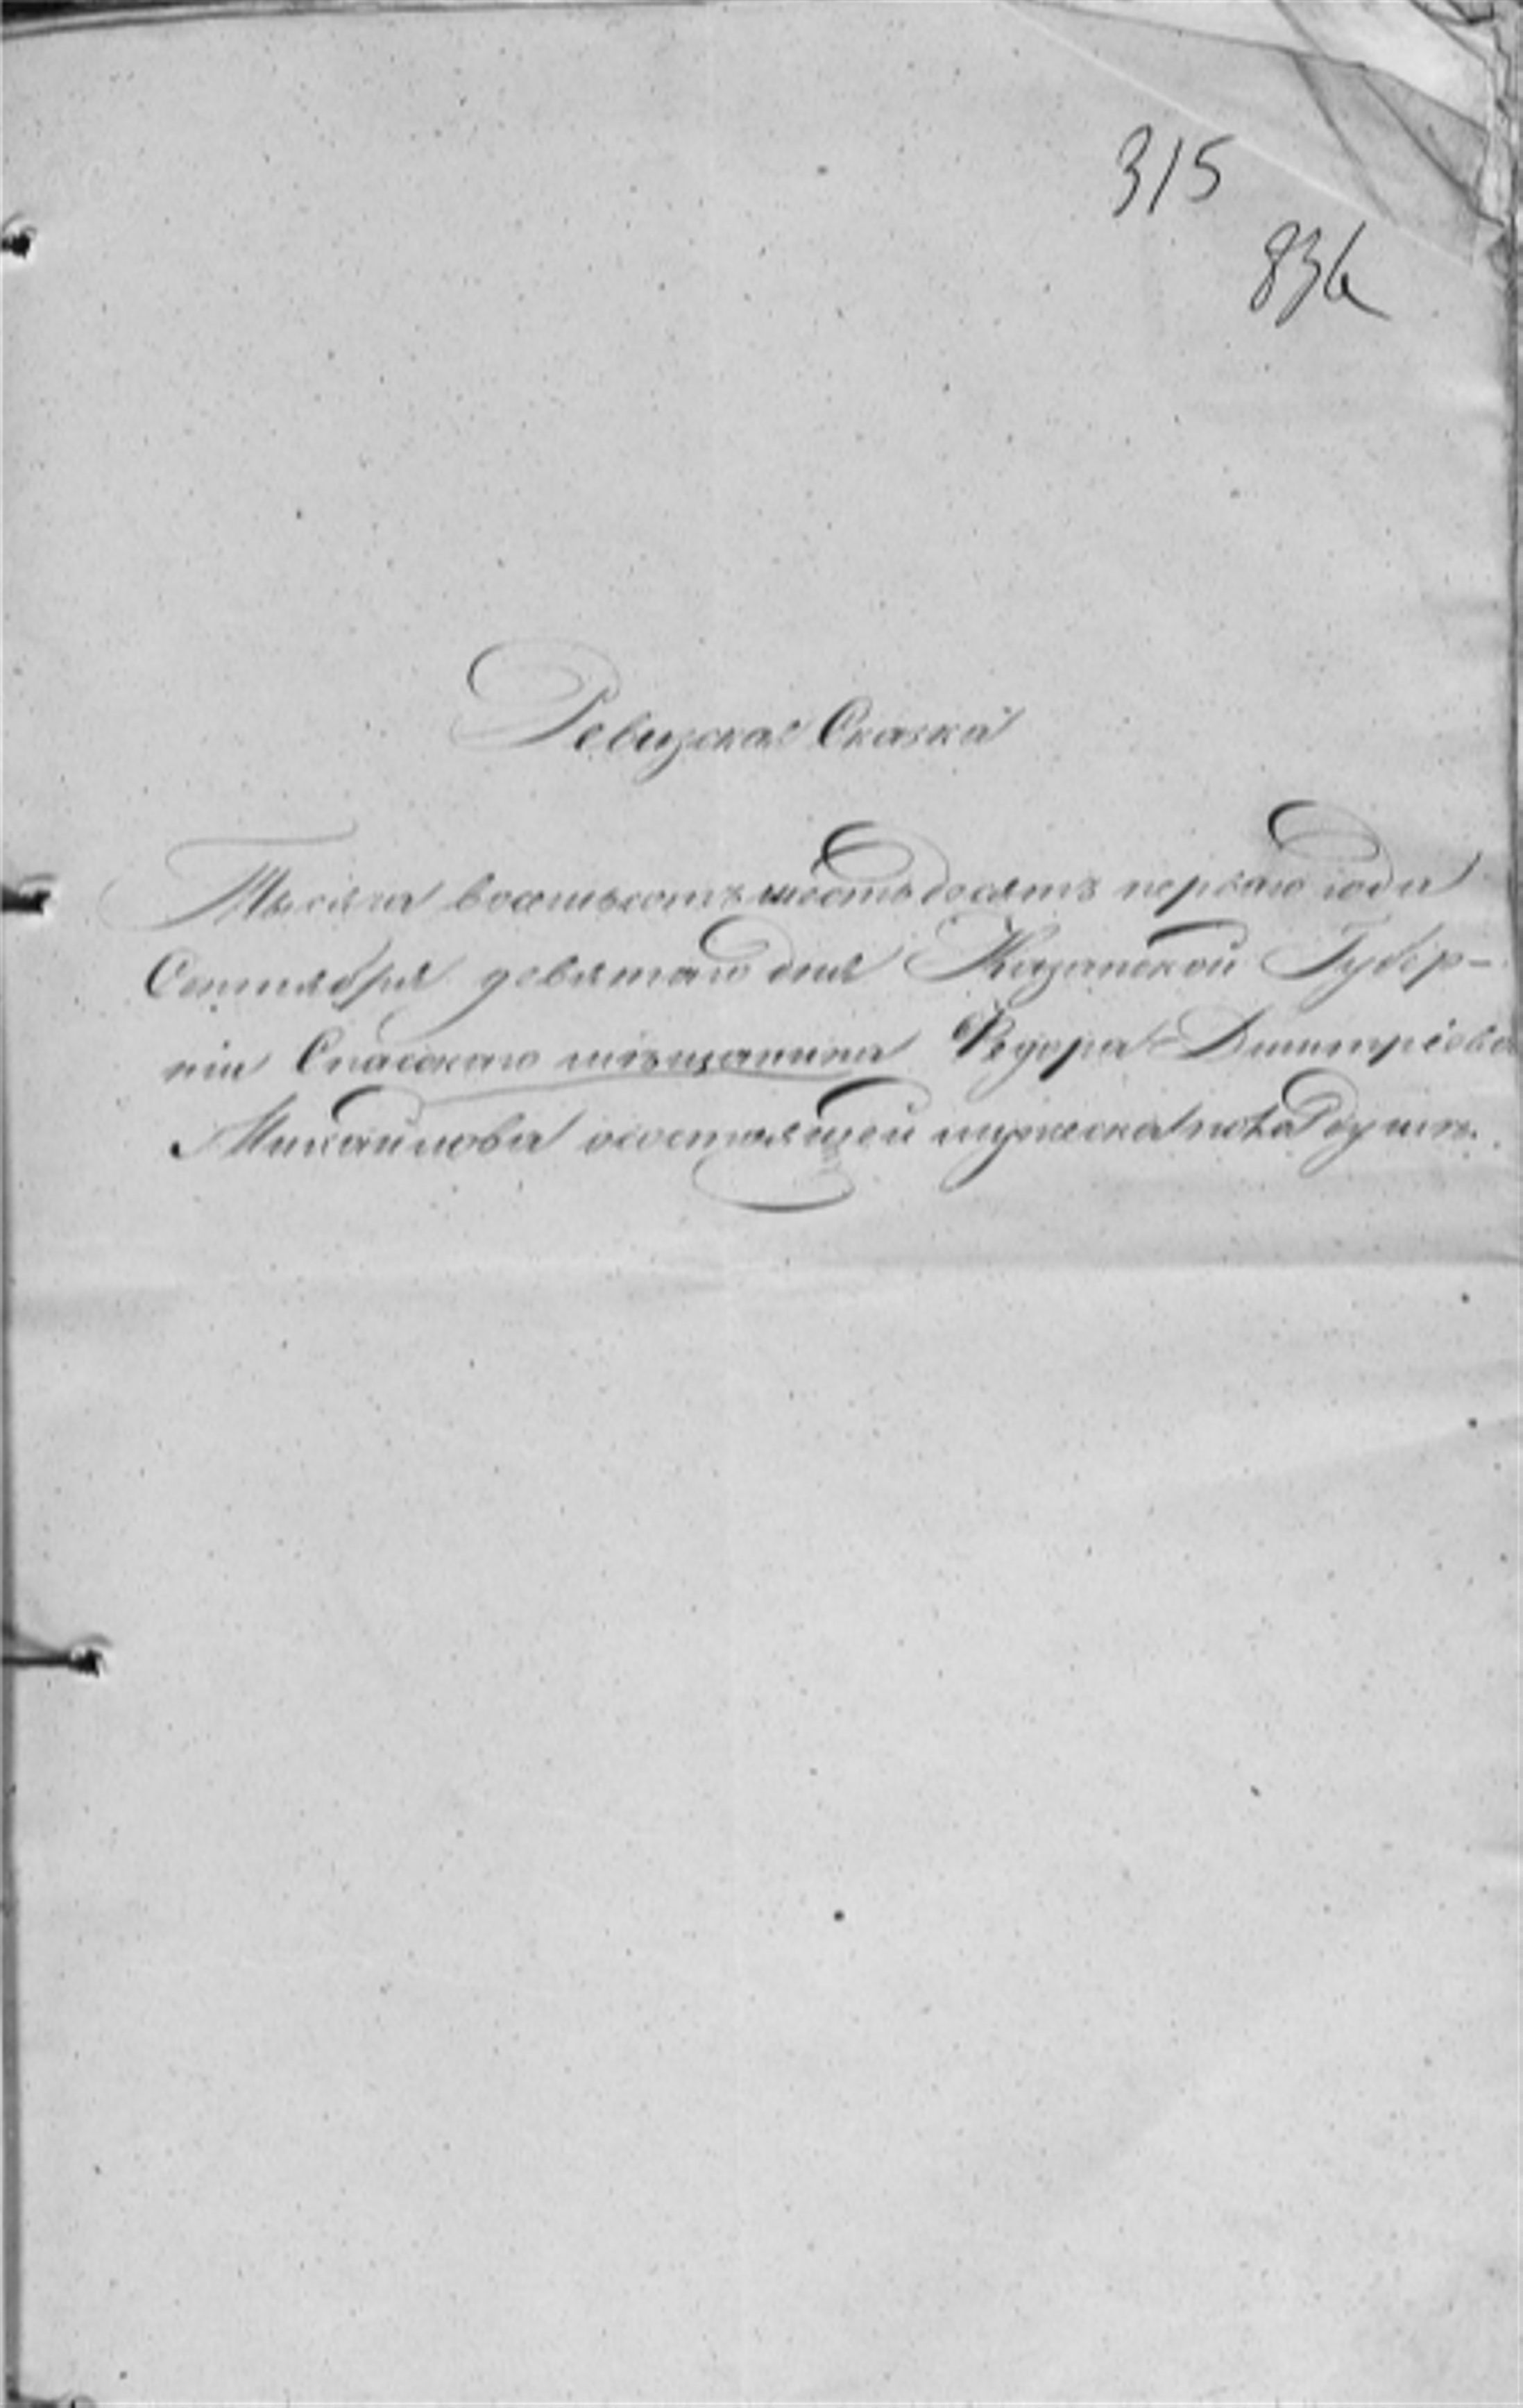 315
836
Ревизская Сказка
Тысяча восемьсотъ шестьдесятъ перваго года
Сентября девятаго дня Казанской Губер-
ніи Спаскаго мѣщанина Ѳедора Дмитріева
Михайлова о состоящей мужеска пола душѣ.